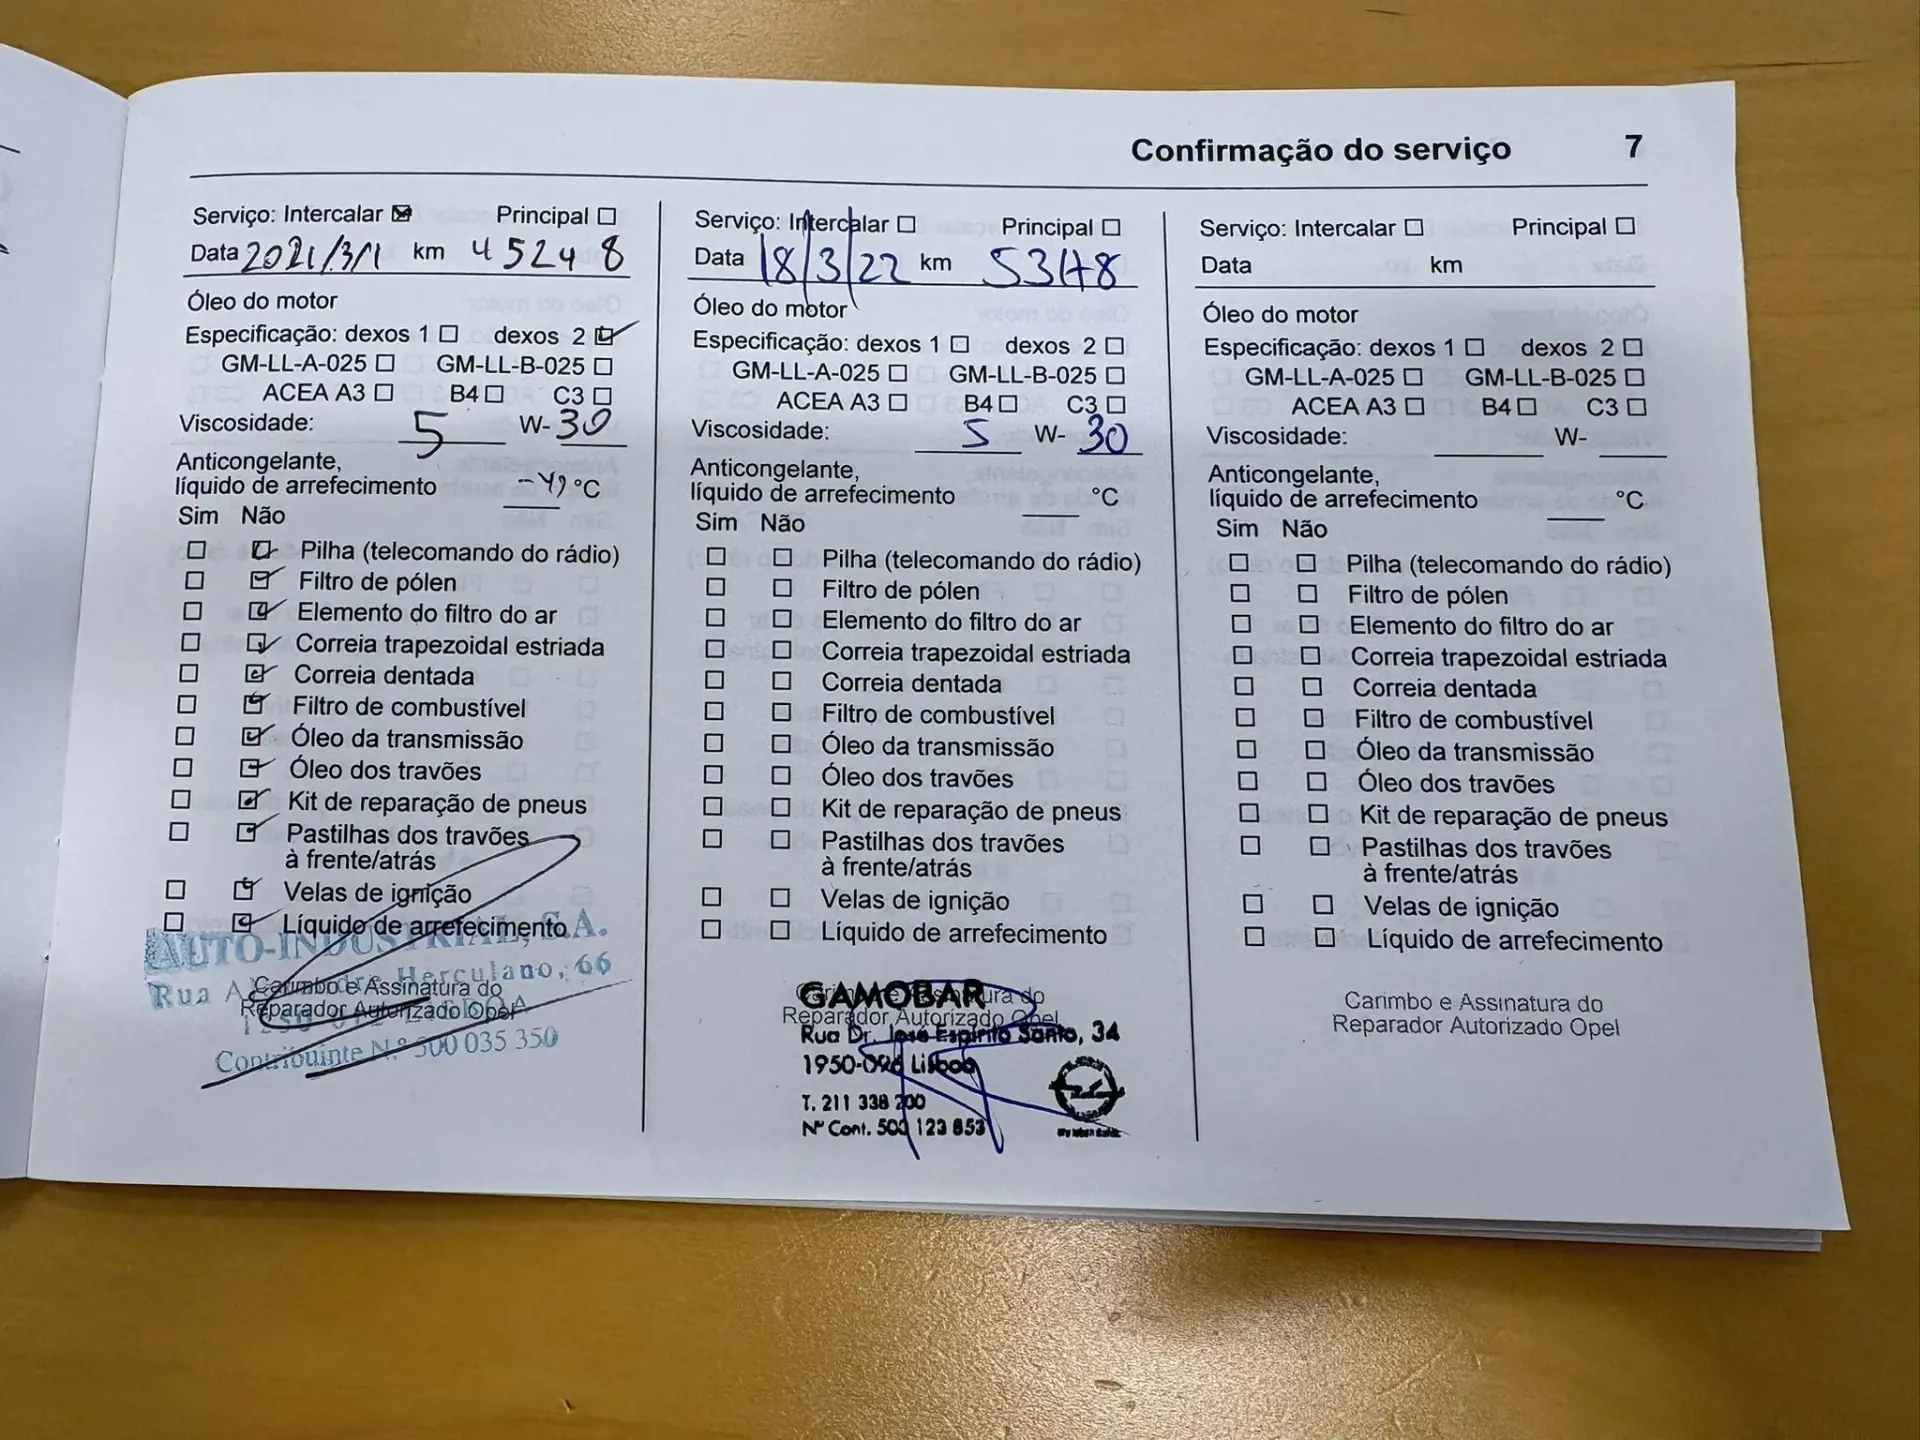 Confirmação do serviço 7
Serviço: Intercalar ☒ Principal ☐
Data 2021/3/1 km 45248
Óleo do motor
Especificação: dexos 1 ☐ dexos 2 ☑
GM-LL-A-025 ☐ GM-LL-B-025 ☐
ACEA A3 ☐ B4 ☐ C3 ☐
Viscosidade: 5 W-30
Anticongelante,
líquido de arrefecimento °C
Sim Não
☐ ☑ Pilha (telecomando do rádio)
☐ ☑ Filtro de pólen
☐ ☑ Elemento do filtro do ar
☐ ☑ Correia trapezoidal estriada
☐ ☑ Correia dentada
☐ ☑ Filtro de combustível
☐ ☑ Óleo da transmissão
☐ ☑ Óleo dos travões
☐ ☑ Kit de reparação de pneus
☐ ☑ Pastilhas dos travões
à frente/atrás
☐ ☑ Velas de ignição
☐ ☑ Líquido de arrefecimento
AUTO-INDUSTRIAL, S.A.
Rua A Herculano, 66
Carimbo e Assinatura do
Reparador Autorizado Opel
Contribuinte N.º 500 035 350
Serviço: Intercalar ☐ Principal ☐
Data 18/3/22 km 53148
Óleo do motor
Especificação: dexos 1 ☐ dexos 2 ☐
GM-LL-A-025 ☐ GM-LL-B-025 ☐
ACEA A3 ☐ B4 ☐ C3 ☐
Viscosidade: 5 W-30
Anticongelante,
líquido de arrefecimento °C
Sim Não
☐ ☐ Pilha (telecomando do rádio)
☐ ☐ Filtro de pólen
☐ ☐ Elemento do filtro do ar
☐ ☐ Correia trapezoidal estriada
☐ ☐ Correia dentada
☐ ☐ Filtro de combustível
☐ ☐ Óleo da transmissão
☐ ☐ Óleo dos travões
☐ ☐ Kit de reparação de pneus
☐ ☐ Pastilhas dos travões
à frente/atrás
☐ ☐ Velas de ignição
☐ ☐ Líquido de arrefecimento
GAMOBAR
Carimbo e Assinatura do
Reparador Autorizado Opel
Rua Dr. José Espírito Santo, 34
1950-096 Lisboa
T. 211 338 200
Nº Cont. 500 123 853
Serviço: Intercalar ☐ Principal ☐
Data km
Óleo do motor
Especificação: dexos 1 ☐ dexos 2 ☐
GM-LL-A-025 ☐ GM-LL-B-025 ☐
ACEA A3 ☐ B4 ☐ C3 ☐
Viscosidade: W-
Anticongelante,
líquido de arrefecimento °C
Sim Não
☐ ☐ Pilha (telecomando do rádio)
☐ ☐ Filtro de pólen
☐ ☐ Elemento do filtro do ar
☐ ☐ Correia trapezoidal estriada
☐ ☐ Correia dentada
☐ ☐ Filtro de combustível
☐ ☐ Óleo da transmissão
☐ ☐ Óleo dos travões
☐ ☐ Kit de reparação de pneus
☐ ☐ Pastilhas dos travões
à frente/atrás
☐ ☐ Velas de ignição
☐ ☐ Líquido de arrefecimento
Carimbo e Assinatura do
Reparador Autorizado Opel